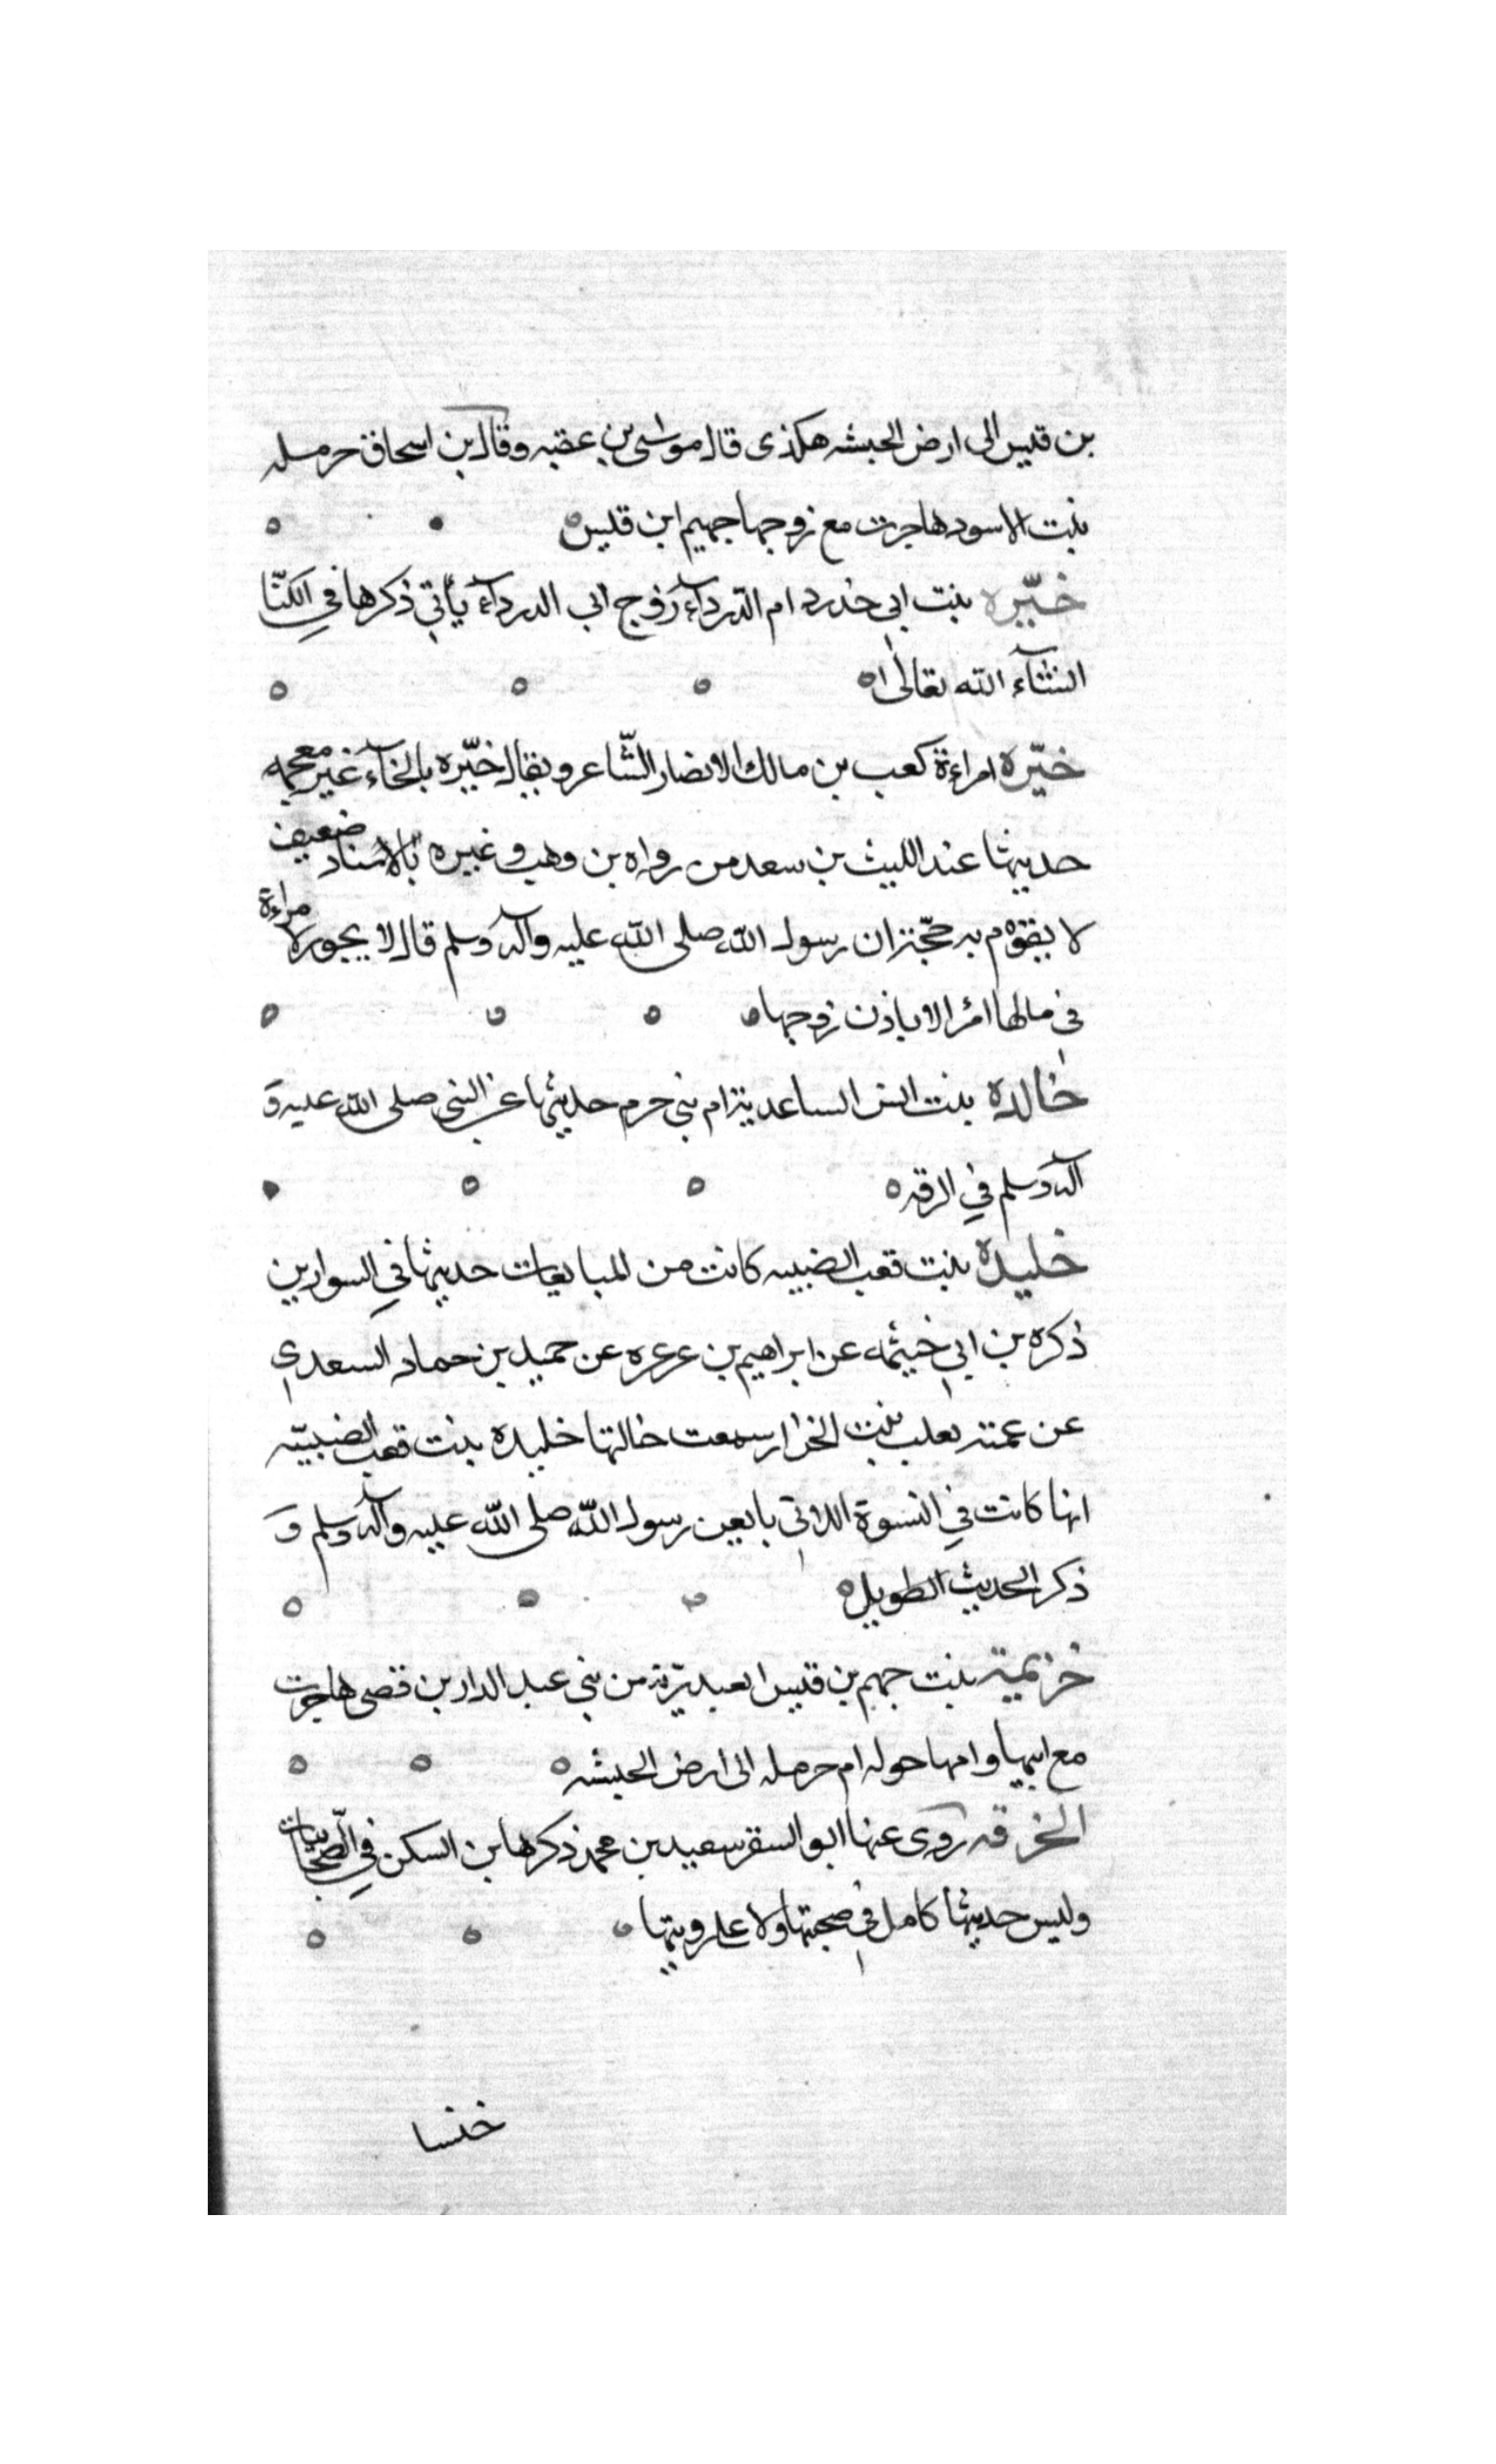 بن قيس الى ارض الحبشه هكذى قال موسى بن عقبه وقال بن اسحاق حرمله
بنت الاسود هاجرت مع زوجها جهيم ابن قيس
خيّره بنت ابي حدرد ام الدّرداء زوج ابى الدرداء يأتي ذكرها في الكنّا
انشاء الله تعالى
خيّره امراءة كعب بن مالك الانصار الشّاعر ويقال خيّره بالخاء غير معجمه
حديثها عند الليث بن سعد من رواه بن وهب وغيره بالاسناد ضعيف
لا يقوم به حجّة ان رسول الله صلى الله عليه وآله وسلم قال لا يجوز لامراءة
في مالها امر الا باذن زوجها
خالده بنت انس الساعدية ام بني حرم حديثها عن النبي صلى الله عليه و
آله وسلم في الرقه
خليده بنت قعب الضبيه كانت من المبايعات حديثها في السوارين
ذكره بن ابي خيثمه عن ابراهيم بن عرعره عن حميد بن حماد السعدي
عن عمته بنت سمعت خالتها خليده بنت قعب الضبيّه
انها كانت في النسوة اللاتي بايعن رسول الله صلى الله عليه وآله وسلم و
ذكر الحديث الطويل
خزيمية بنت جهم بن قيس العبديّة من بني عبد الدار بن قصى هاجرت
مع ابيها وامها خوله ام حرمله الى ارض الحبشه
الخرقه روى عنها ابو السفر سعيد بن محمد ذكرها بن السكن في الصّحابيات
وليس حديثها كامل في صحبتها ولا على رويتها
خنسا